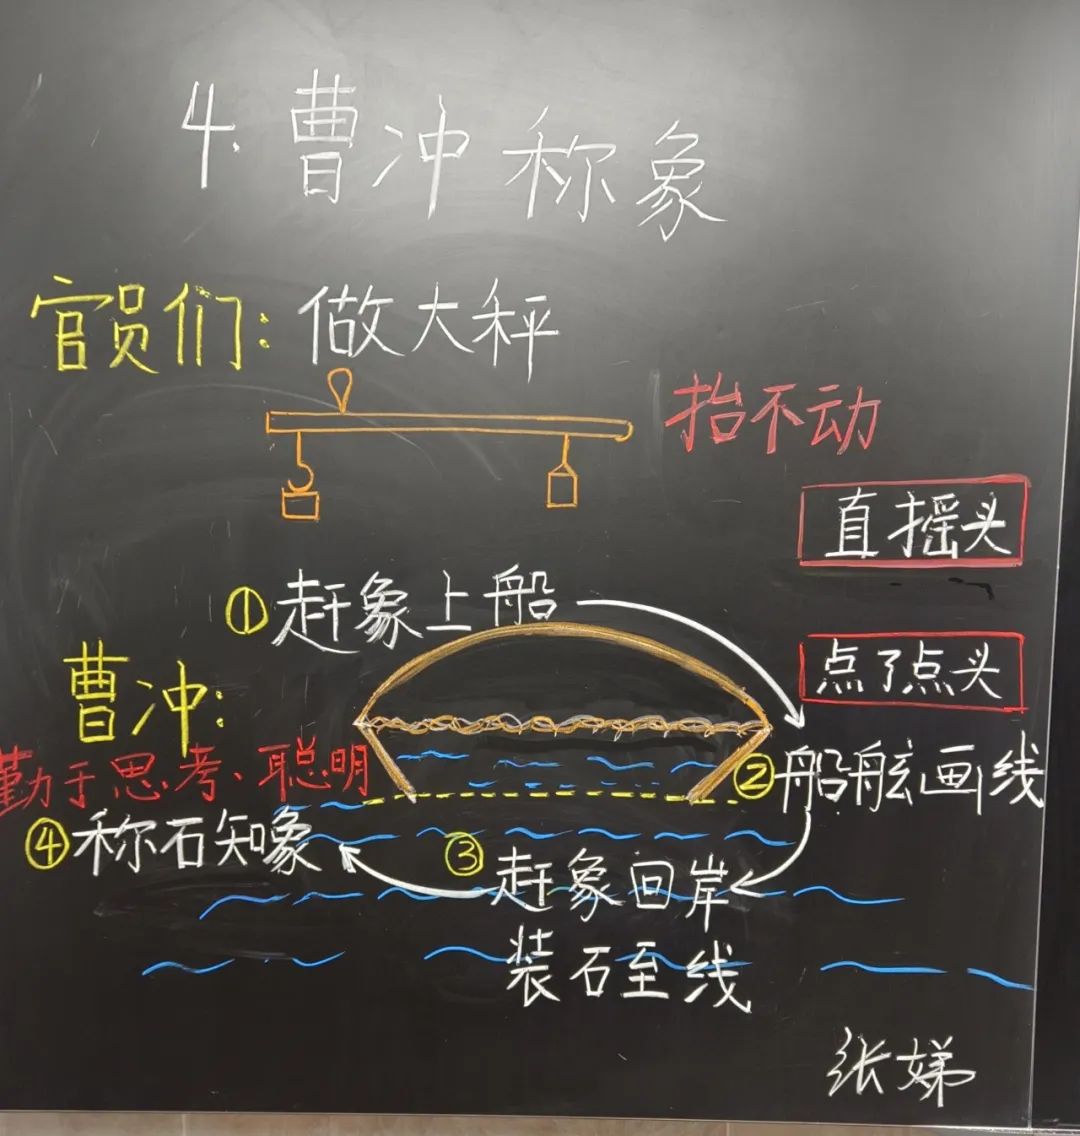 4.曹冲称象
官员们：做大秤
抬不动
直摇头
①赶象上船
点了点头
曹冲：
勤于思考、聪明
②船舷画线
③赶象回岸
装石至线
④称石知象
张娣